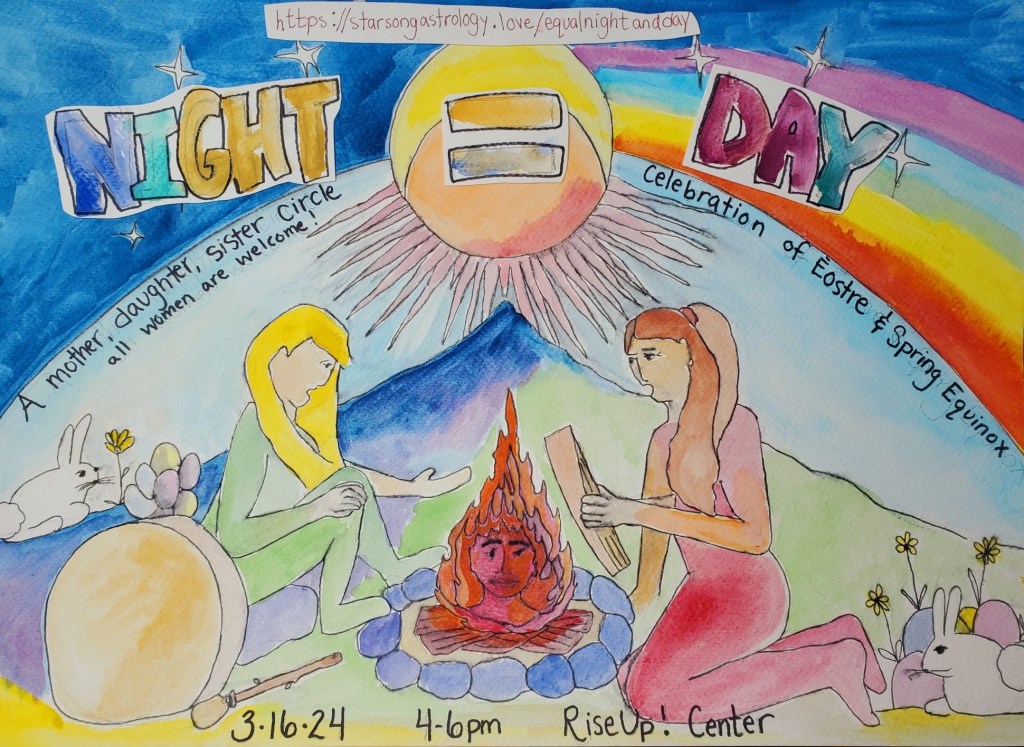 https://starsongastrology.love/equalnightandday
NIGHT = DAY
A mother, daughter, sister circle
all women are welcome!
Celebration of Eostre & Spring Equinox
3.16.24 4-6pm RiseUp! Center